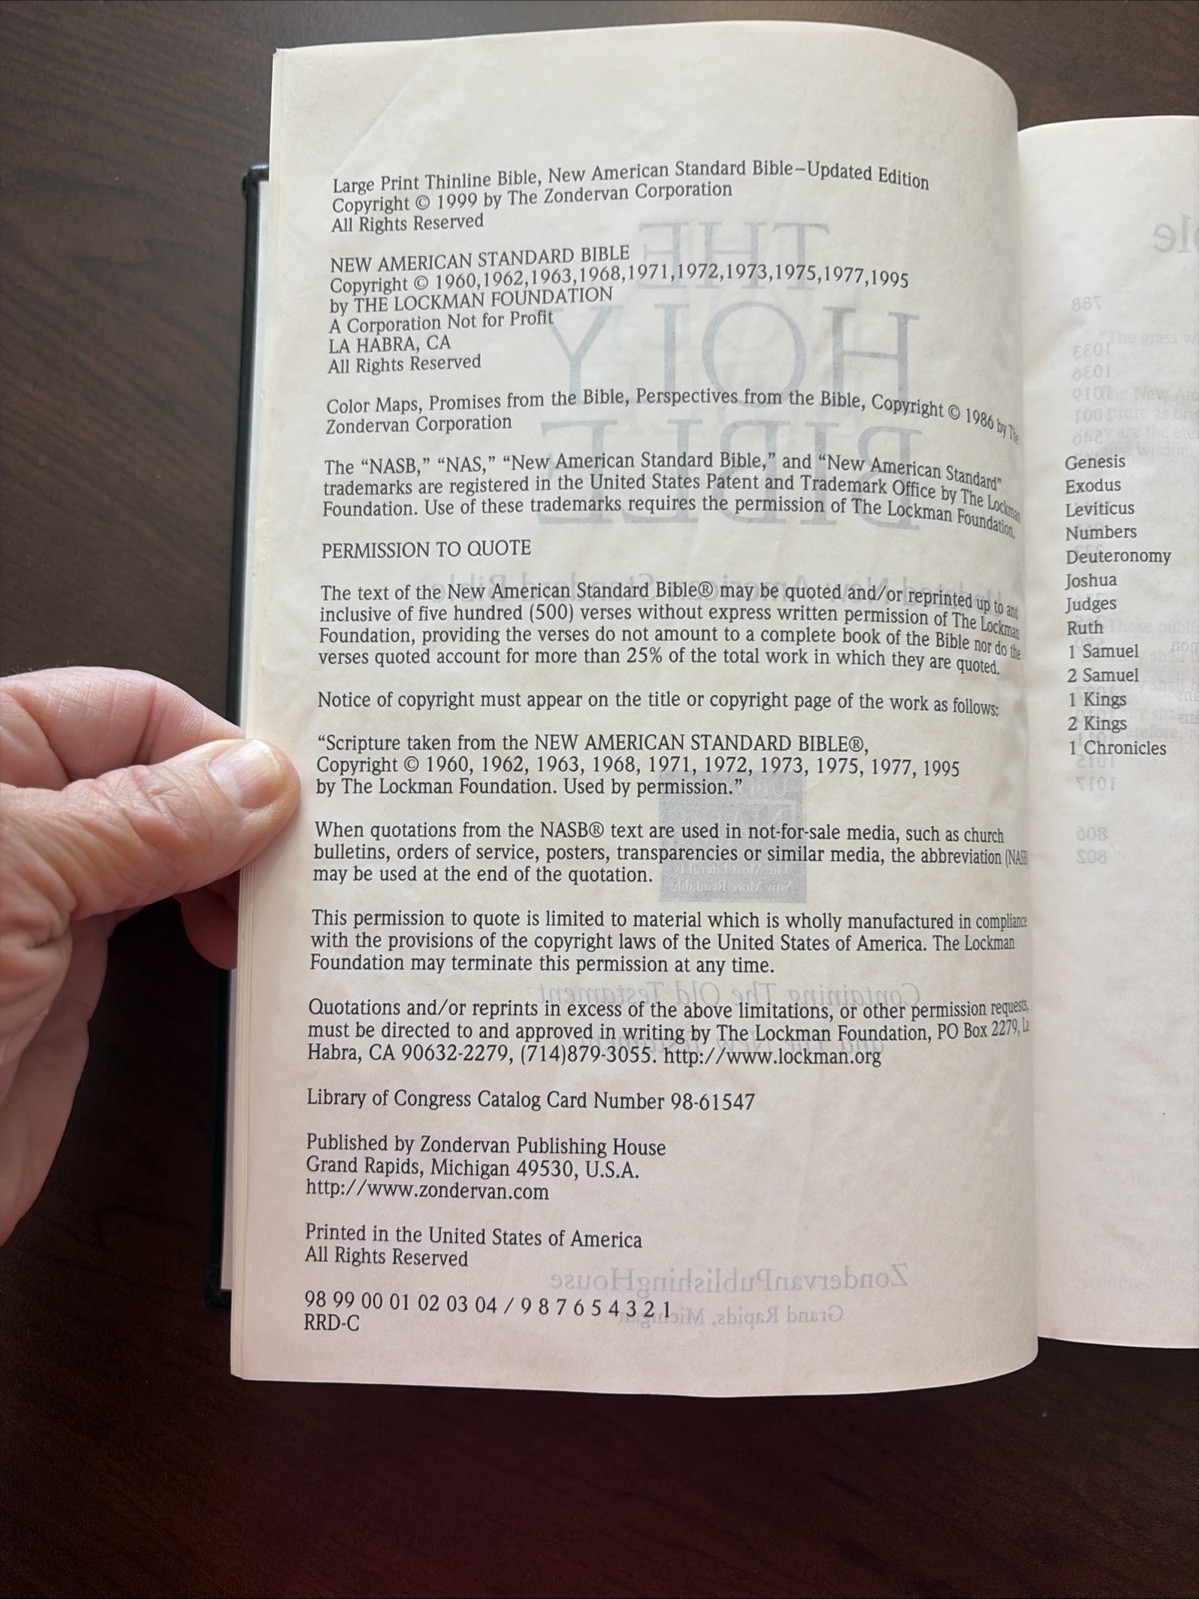 Large Print Thinline Bible, New American Standard Bible–Updated Edition
Copyright © 1999 by The Zondervan Corporation
All Rights Reserved
NEW AMERICAN STANDARD BIBLE
Copyright © 1960,1962,1963,1968,1971,1972,1973,1975,1977,1995
by THE LOCKMAN FOUNDATION
A Corporation Not for Profit
LA HABRA, CA
All Rights Reserved
Color Maps, Promises from the Bible, Perspectives from the Bible, Copyright © 1986 by The
Zondervan Corporation
The “NASB,” “NAS,” “New American Standard Bible,” and “New American Standard”
trademarks are registered in the United States Patent and Trademark Office by The Lockman
Foundation. Use of these trademarks requires the permission of The Lockman Foundation.
PERMISSION TO QUOTE
The text of the New American Standard Bible® may be quoted and/or reprinted up to and
inclusive of five hundred (500) verses without express written permission of The Lockman
Foundation, providing the verses do not amount to a complete book of the Bible nor do the
verses quoted account for more than 25% of the total work in which they are quoted.
Notice of copyright must appear on the title or copyright page of the work as follows:
“Scripture taken from the NEW AMERICAN STANDARD BIBLE®,
Copyright © 1960, 1962, 1963, 1968, 1971, 1972, 1973, 1975, 1977, 1995
by The Lockman Foundation. Used by permission.”
When quotations from the NASB® text are used in not-for-sale media, such as church
bulletins, orders of service, posters, transparencies or similar media, the abbreviation (NASB
may be used at the end of the quotation.
This permission to quote is limited to material which is wholly manufactured in compliance
with the provisions of the copyright laws of the United States of America. The Lockman
Foundation may terminate this permission at any time.
Quotations and/or reprints in excess of the above limitations, or other permission requests,
must be directed to and approved in writing by The Lockman Foundation, PO Box 2279, La
Habra, CA 90632-2279, (714)879-3055. http://www.lockman.org
Library of Congress Catalog Card Number 98-61547
Published by Zondervan Publishing House
Grand Rapids, Michigan 49530, U.S.A.
http://www.zondervan.com
Printed in the United States of America
All Rights Reserved
98 99 00 01 02 03 04 / 9 8 7 6 5 4 3 2 1
RRD-C
Genesis
Exodus
Leviticus
Numbers
Deuteronomy
Joshua
Judges
Ruth
1 Samuel
2 Samuel
1 Kings
2 Kings
1 Chronicles